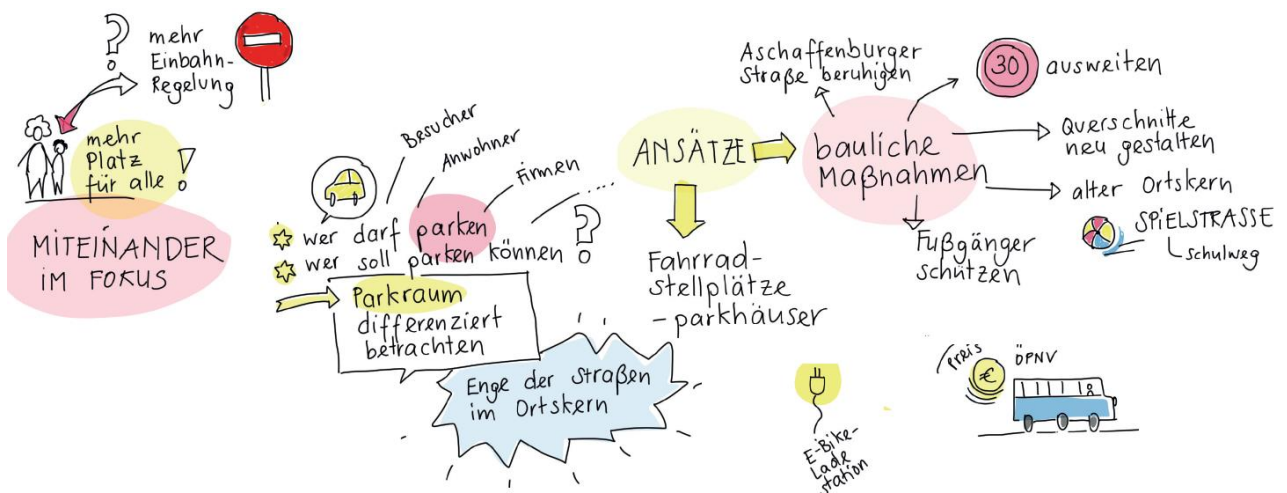 ?
mehr
Einbahn-
Regelung
mehr
Platz
für alle!
MITEINANDER
IM FOKUS
Besucher
Anwohner
Firmen
....
wer darf parken
wer soll parken können ?
Parkraum
differenziert
betrachten
Enge der Straßen
im Ortskern
ANSÄTZE
Fahrrad-
stellplätze
- parkhäuser
bauliche
Maßnahmen
Aschaffenburger
Straße beruhigen
30 ausweiten
Querschnitte
neu gestalten
alter Ortskern
SPIELSTRASSE
schulweg
Fußgänger
schützen
E-Bike-
Lade
station
Preis
€
ÖPNV